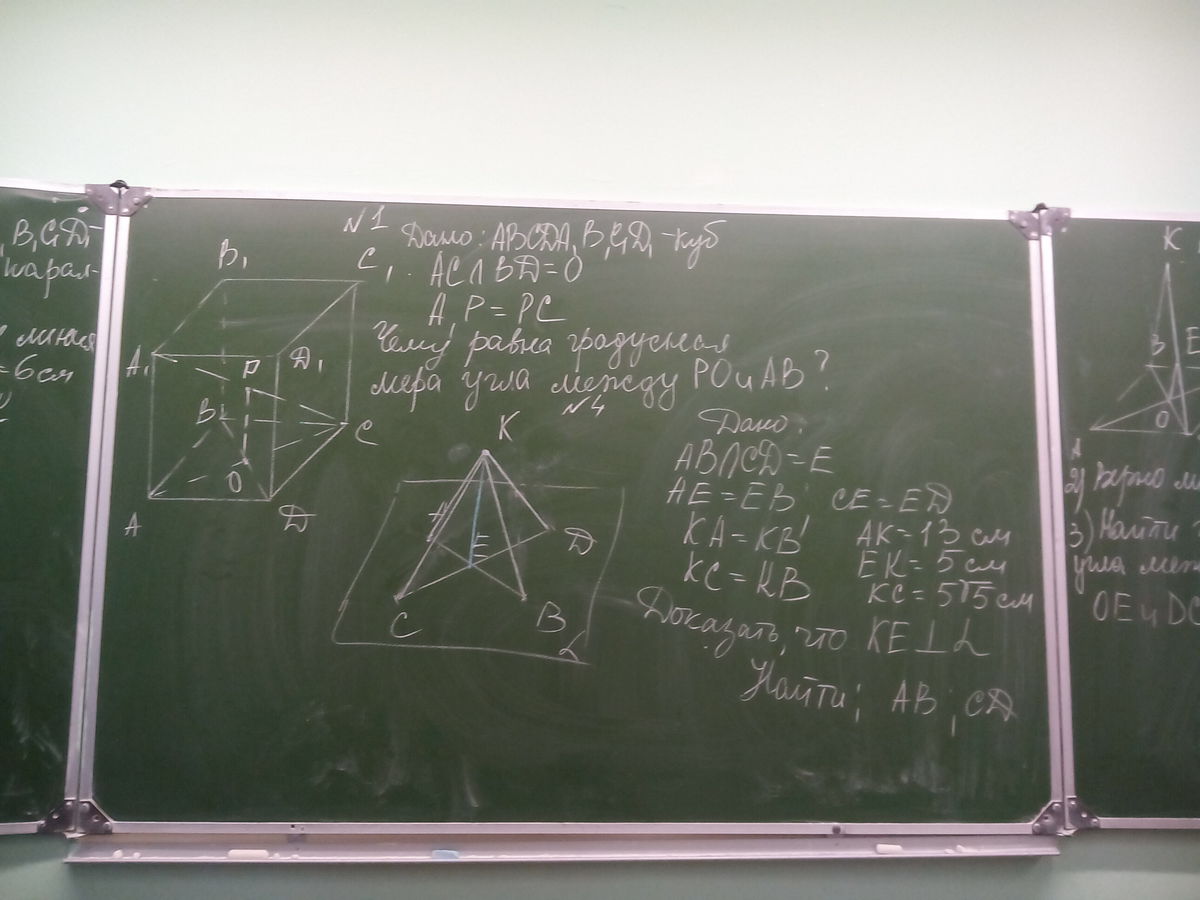 B₁C₁D₁-
парал-
= 6см
№1
Дано: ABCDA₁B₁C₁D₁ -куб
AC∩BD=O
A₁P=PC
Чему равна градусная
мера угла между PO и AB?
B₁
C₁
A₁
D₁
P
B
C
O
A
D
№4
K
A
D
E
C
B
α
Дано:
AB∩CD=E
AE=EB CE=ED
KA=KB AK=13 см
KC=KB EK=5 см
KC=5√5 см
Доказать, что KE⊥α
Найти; AB; CD
K
B
E
O
A
2) Верно
3) Найти
угла
OE и DC